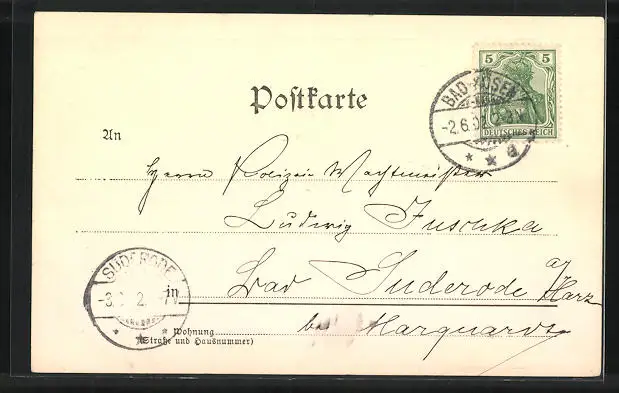 Postkarte
5 5
DEUTSCHES REICH
BAD-KÖSEN
-2.6.0
An
Herrn Polizei Wachtmeister
Ludwig Juschka
in Bad Suderode a/Harz
bei Marquardt
Wohnung
(Straße und Hausnummer)
SUDERODE